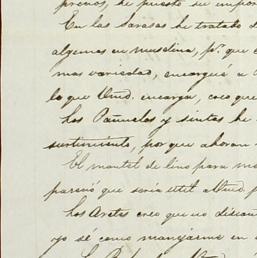 precios, he puesto su impor
En las sarasas he tratado d
algunas en muselina, pr. que e
mas variedad, encargué a
lo que Vmd. encarga, creo que
Los Pañuelos y cintas he
surtimiento, por que ahorran
El mantel de lino para me
pareció que seria util
Los Aretes creo que no
yo sé como manejarme en